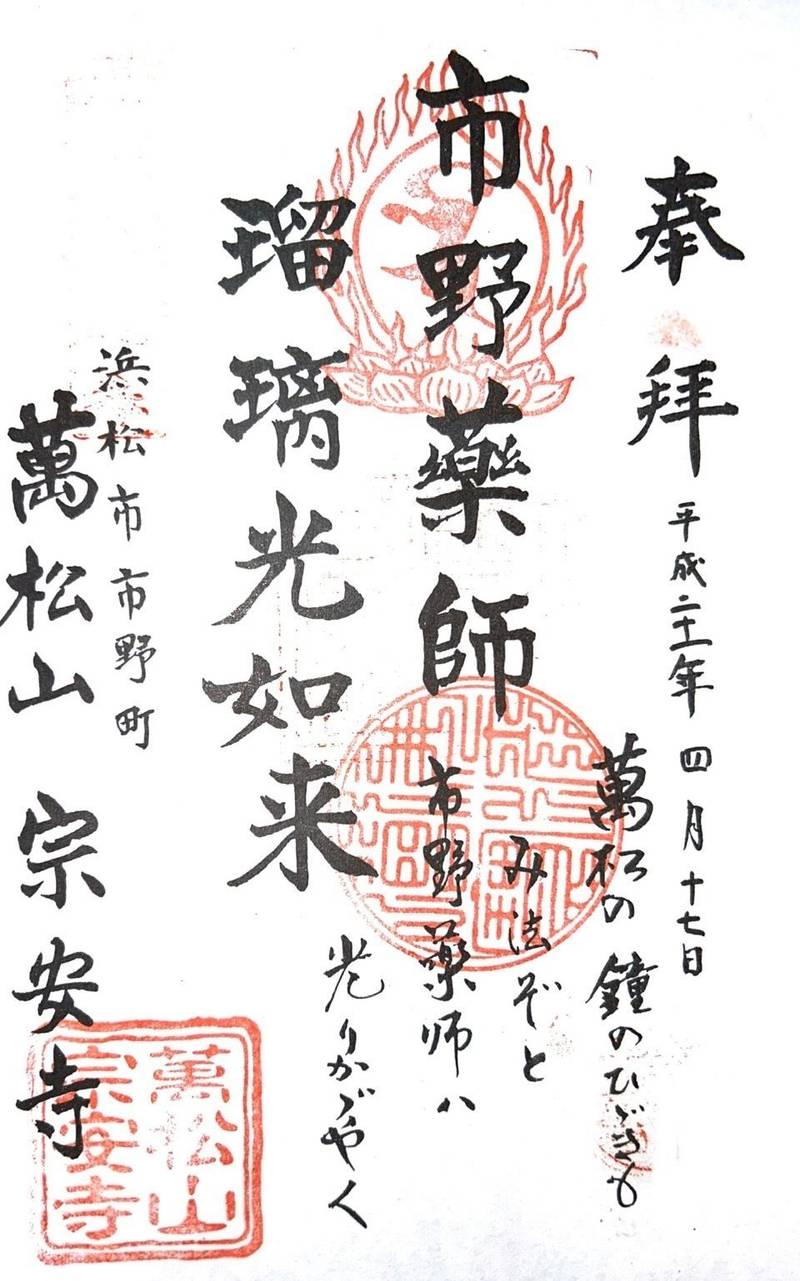 奉拝
平成二十一年四月十七日
萬松の鐘のひゞきも
み法ぞと
市野薬師ハ
光りかゞやく
市野藥師
瑠璃光如来
浜松市市野町
萬松山 宗安寺
萬松山
宗安寺